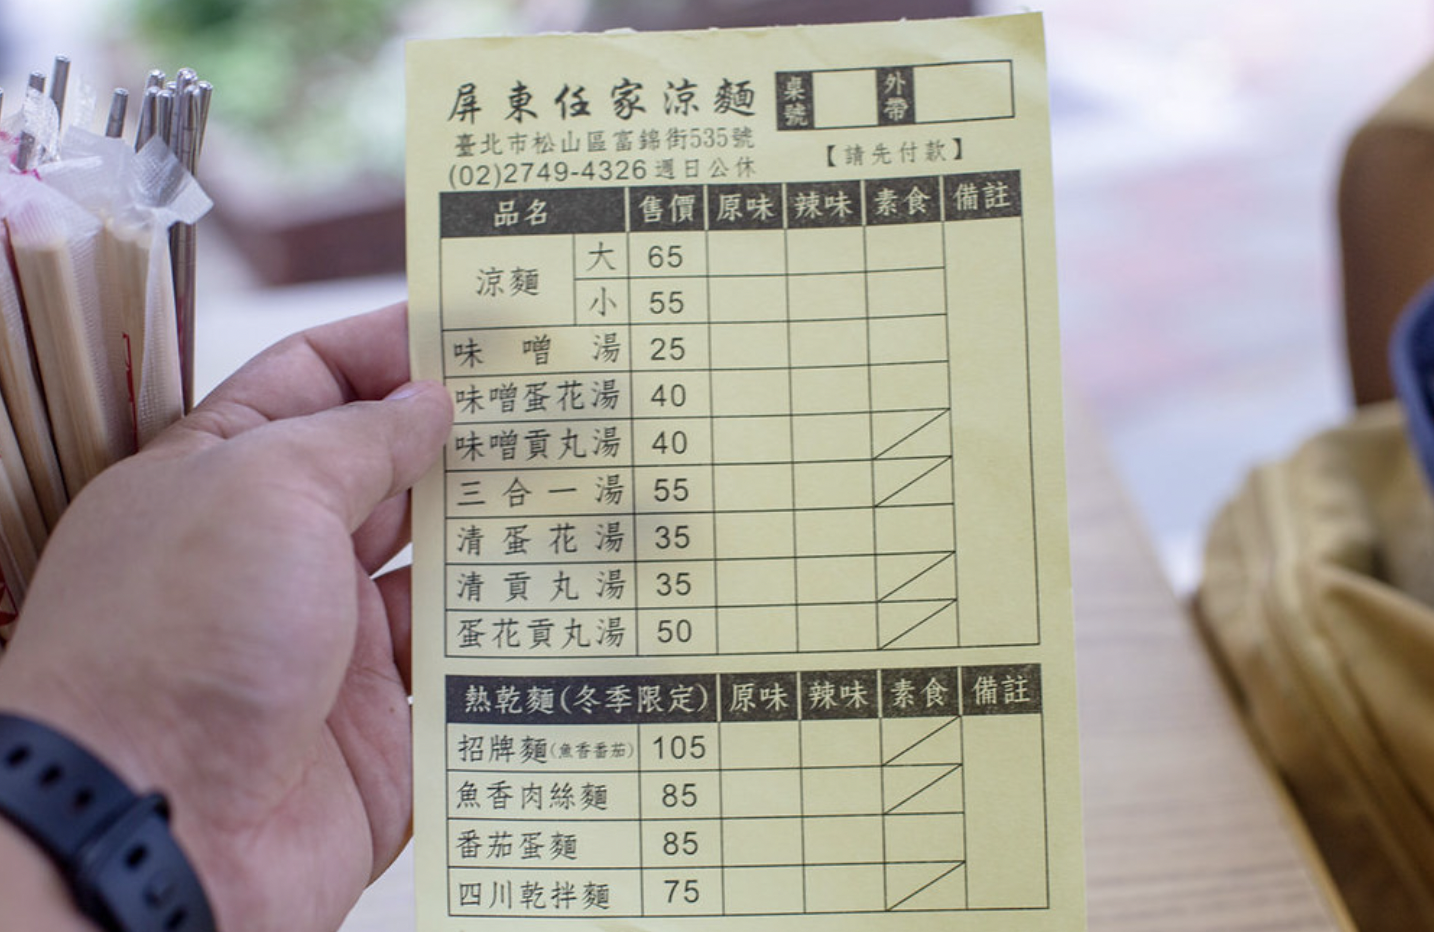 屏東任家涼麵
臺北市松山區富錦街535號
(02)2749-4326 週日公休
桌號 外帶
【請先付款】
品名 售價 原味 辣味 素食 備註
涼麵 大 65
小 55
味噌湯 25
味噌蛋花湯 40
味噌貢丸湯 40
三合一湯 55
清蛋花湯 35
清貢丸湯 35
蛋花貢丸湯 50
熱乾麵(冬季限定) 原味 辣味 素食 備註
招牌麵(魚香番茄) 105
魚香肉絲麵 85
番茄蛋麵 85
四川乾拌麵 75